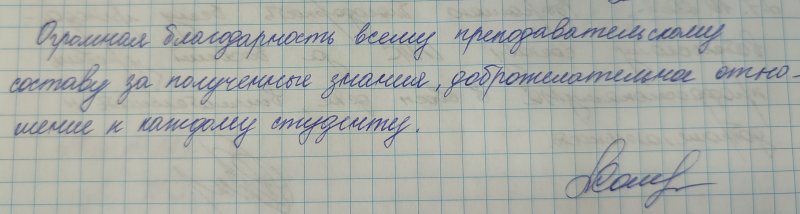 Огромная благодарность всему преподавательскому
составу за полученные знания, доброжелательное отно-
шение к каждому студенту.